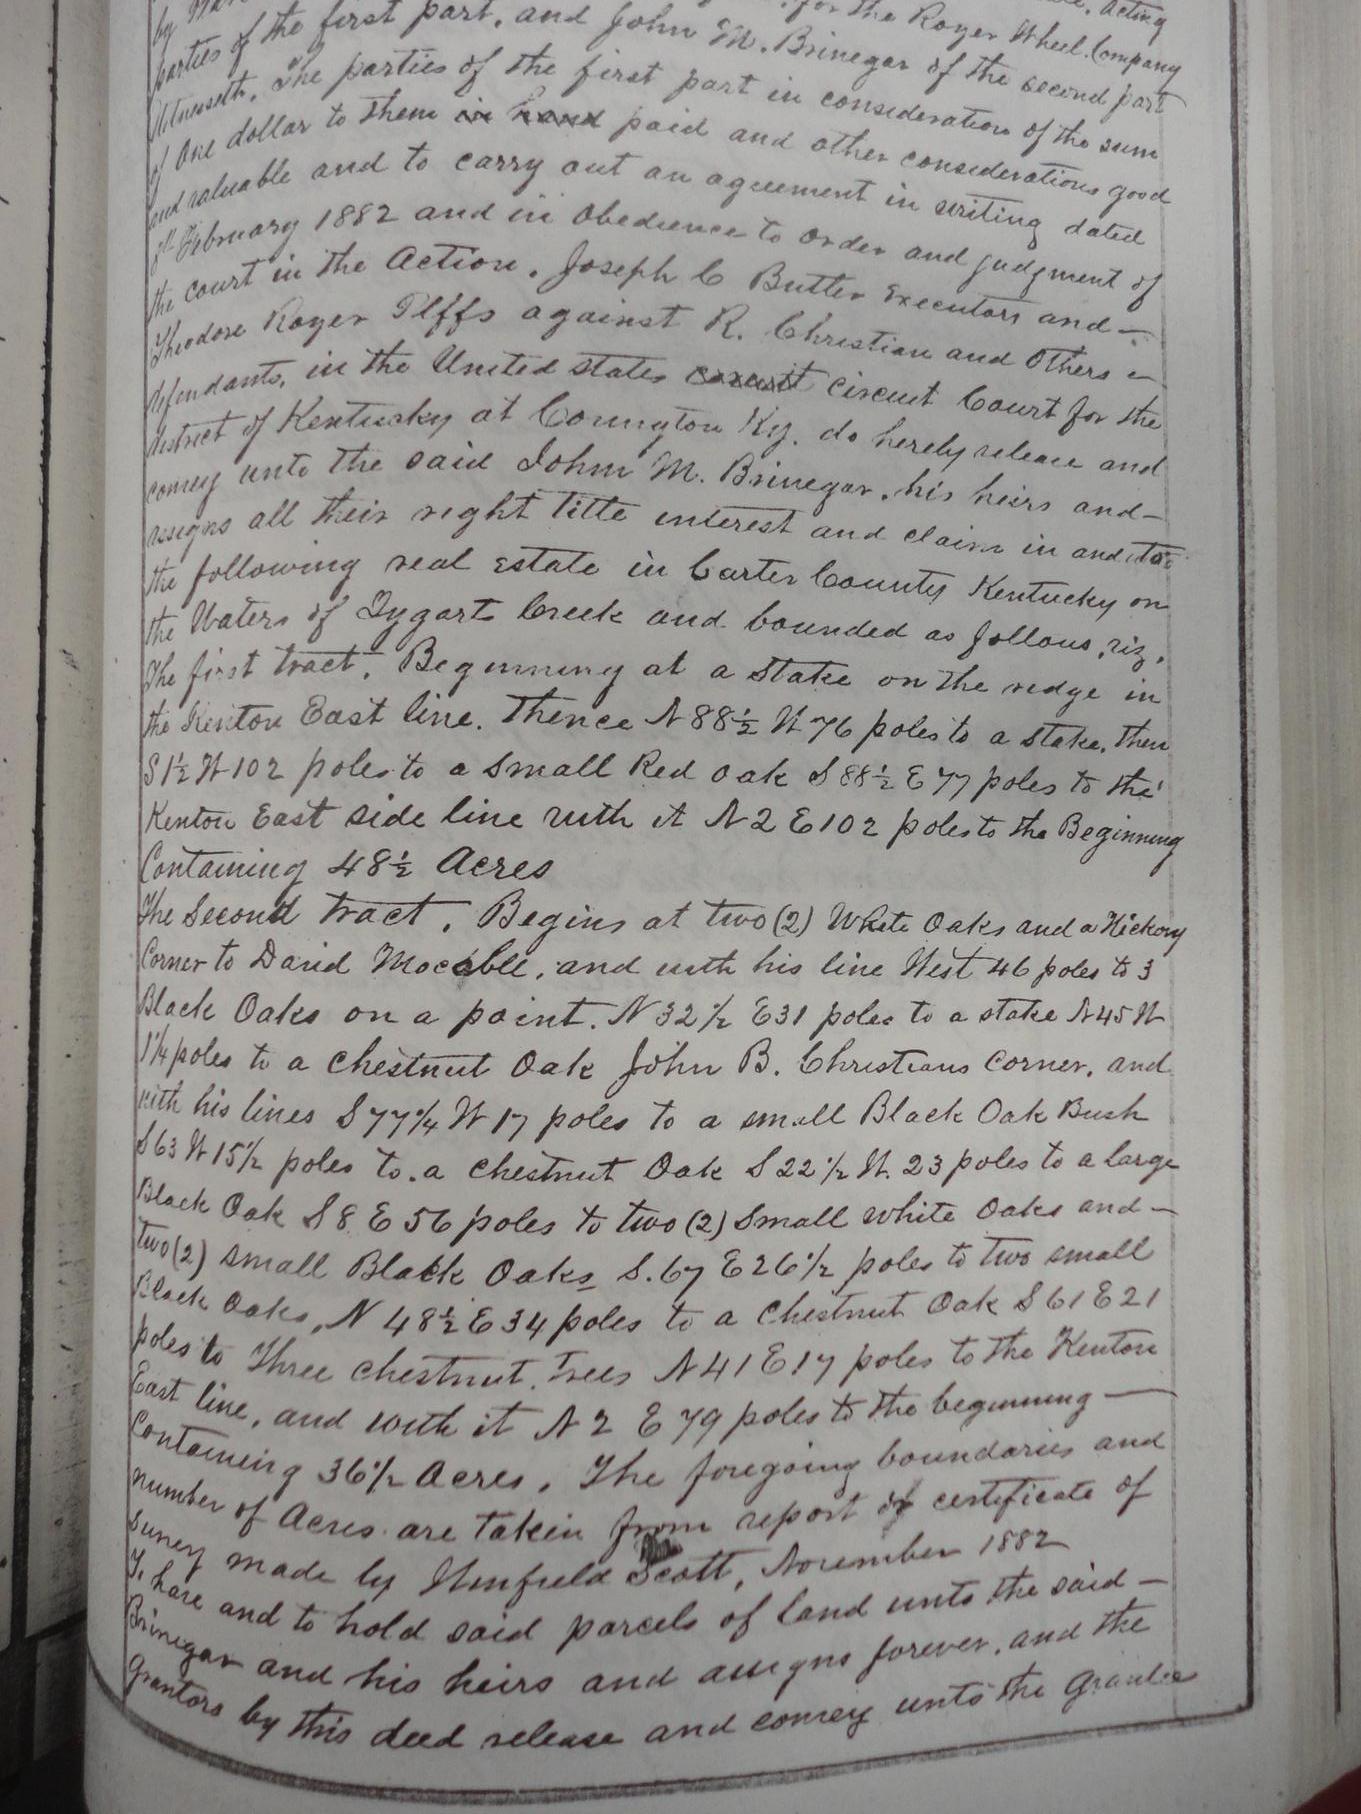 by acting
parties of the first part, for the Royer Wheel Company
and John M. Brinegar of the second part
Witnesseth. The parties of the first part in consideration of the sum
of one dollar to them in hand paid and other considerations good
and valuable and to carry out an agreement in writing dated
February 1882 and in obedience to order and judgment of
the court in the Action. Joseph C Butler Executors and —
Theodore Royer Plffs against R. Christian and others —
defendants, in the United states circuit Court for the
district of Kentucky at Covington Ky. do hereby release and
convey unto the said John M. Brinegar, his heirs and —
assigns all their right title interest and claim in and to
the following real Estate in Carter County Kentucky on
the Waters of Tygarts Creek and bounded as follows, viz,
The first tract, Beginning at a stake on the ridge in
the Kenton East line. Thence N 88½ W 76 poles to a stake, then
S 1½ W 102 poles to a small Red oak S 88½ E 77 poles to the
Kenton East side line with it N 2 E 102 poles to the Beginning
Containing 48½ Acres
The Second tract, Begins at two (2) White Oaks and a Hickory
Corner to David and with his line West 46 poles to 3
Black Oaks on a point. N 32½ E 31 poles to a stake N 45 W
1¼ poles to a chestnut Oak John B. Christians Corner, and
with his lines S 77¼ W 17 poles to a small Black Oak Bush
S 63 W 15½ poles to a chestnut Oak S 22½ W. 23 poles to a large
Black Oak S 8 E 56 poles to two (2) small white Oaks and —
two (2) small Black Oaks S. 67 E 26½ poles to two small
Black Oaks, N 48½ E 34 poles to a chestnut Oak S 61 E 21
poles to Three chestnut Trees N 41 E 17 poles to the Kenton
East line, and with it N 2 E 79 poles to the beginning —
Containing 36½ Acres. The foregoing boundaries and
number of Acres are taken from report of certificate of
survey made by Winfield Scott, November 1882
To have and to hold said parcels of land unto the said —
Brinegar and his heirs and assigns forever, and the
Grantors by this deed release and convey unto the Grantee